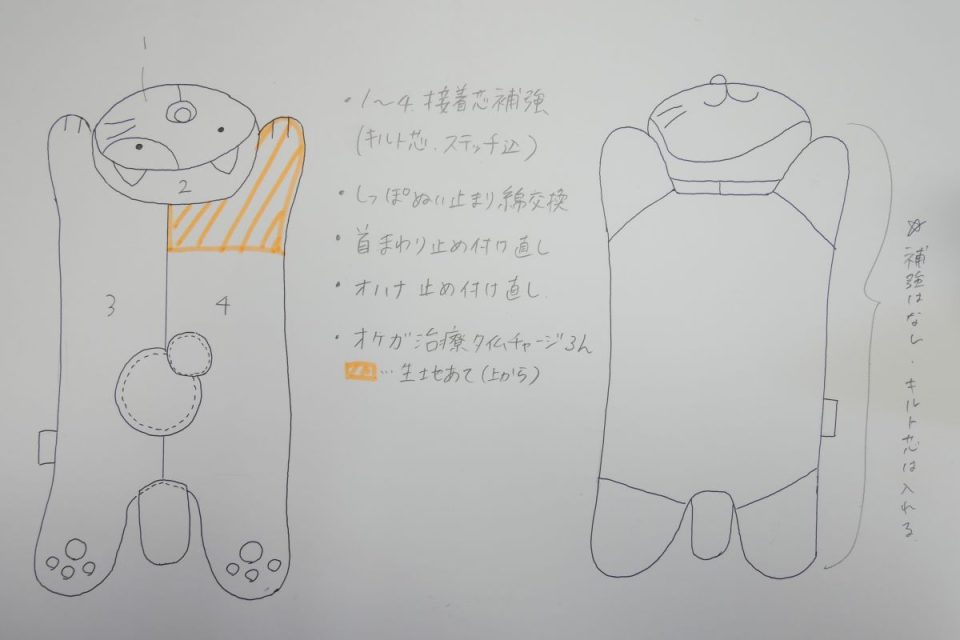 1
2
3
4
・1〜4. 接着芯補強
(キルト芯.ステッチ込)
・しっぽぬい止まり綿交換
・首まわり止め付け直し
・オハナ 止め付け直し.
・オケガ治療タイムチャージ3h
…生地あて(上から)
☆補強はなし.キルト芯は入れる.